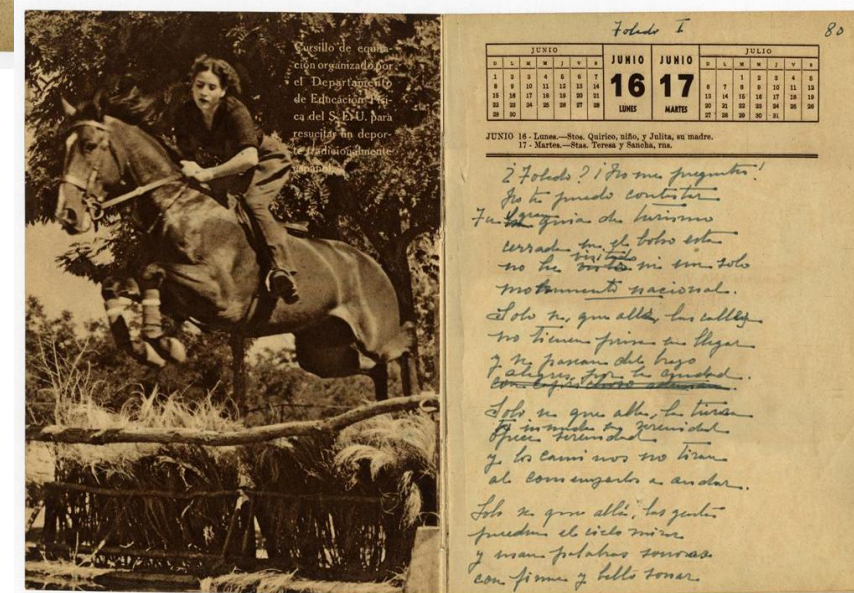 Cursillo de equita-
ción organizado por
el Departamento
de Educación Físi-
ca del S. E. U. para
resucitar un depor-
te tradicionalmente
español.
Toledo I
80
JUNIO
D L M M J V S
1 2 3 4 5 6 7
8 9 10 11 12 13 14
15 16 17 18 19 20 21
22 23 24 25 26 27 28
29 30
JUNIO
16
LUNES
JUNIO
17
MARTES
JULIO
D L M M J V S
1 2 3 4 5
6 7 8 9 10 11 12
13 14 15 16 17 18 19
20 21 22 23 24 25 26
27 28 29 30 31
JUNIO 16 - Lunes.—Stos. Quirico, niño, y Julita, su madre.
17 - Martes.—Stas. Teresa y Sancha, rns.
¿Toledo? ¡No me preguntes!
No te puedo contestar
Tu guia de turismo
cerrada en el bolso esta
no he visitado ni un solo
monumento nacional.
Solo se, que allá, las calles
no tienen prisa en llegar
y se pasean
alegres, por la ciudad.
con
Solo se que alla, la tierra
serenidad
ofrece serenidad
y los caminos no tiran
al comenzarlos a andar.
Solo se que allá, las gentes
pueden el cielo mirar
y usan palabras sonoras
con firme y bello sonar